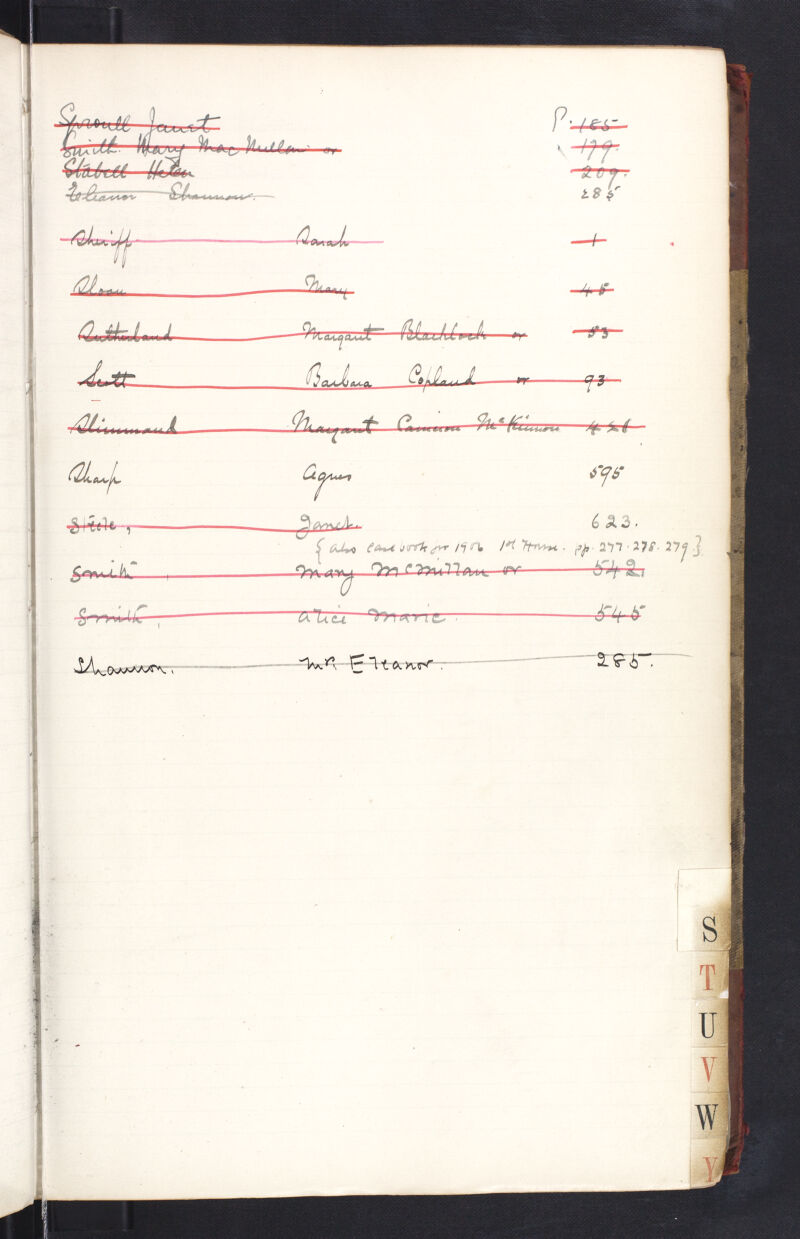 Sproull Janet P. 185
Smith Mary MacMillan or 179.
Stabell Helen 209.
Eleanor Shannon. 285
Sheriff Sarah 1
Sloan Mary 45
Sutherland Margaret Blacklock or 53
Scott Barbara Copland or 93
Slimmand Margaret Cameron McKinnon
Sharp Agnes 595
Steele, Janet. 623.
{also case book for 1906 1st House. pp. 277. 278. 279}
Smith, Mary McMillan or 542.
Smith, Alice Marie. 545
Shannon. Mrs Eleanor. 285.
S
T
U
V
W
Y